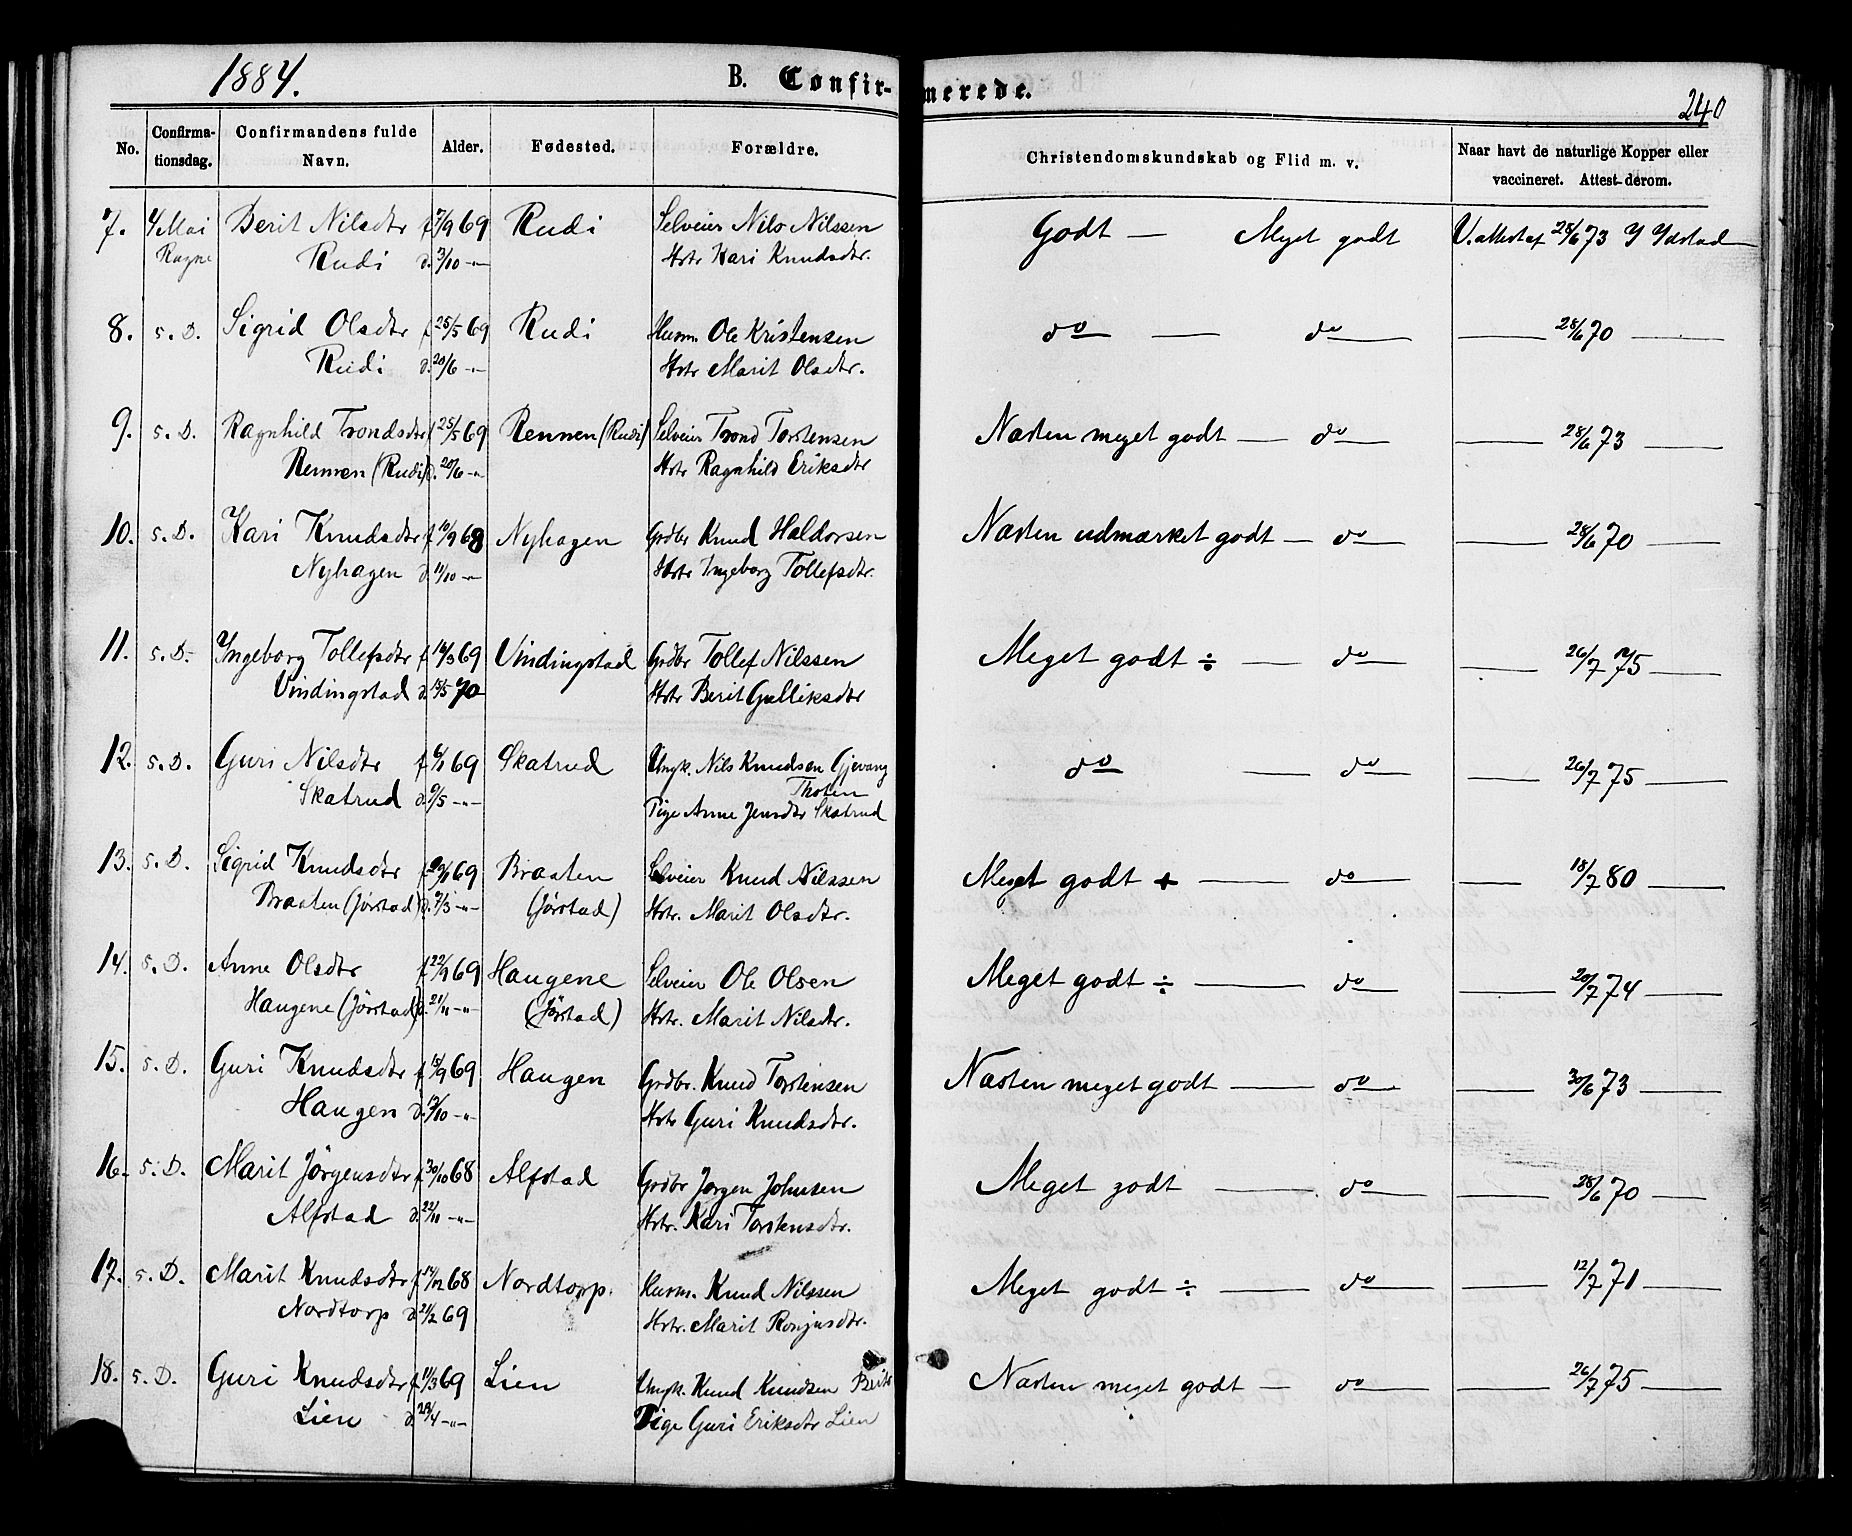 1884.
B. Confirmerede.
240
No. Confirmationsdag. Confirmandens fulde Navn. Alder. Fødested. Forældre. Christendomskundskab og Flid m. v. Naar havt de naturlige Kopper eller vaccineret. Attest derom.
7. 4 Mai Berit Nilsdtr f 7/9 69 Rudi Selveier Nils Nilssen Godt — Meget godt V.attest af 28/6 73
Rogne Rudi d. 3/10 -"- Hstr Kari Knudsdtr.
8. s. D. Sigrid Olsdtr f 25/5 69 Rudi Husm. Ole Kristensen do — do — 28/6 70 —
Rudi d. 20/6 -"- Hstr Marit Olsdtr.
9. s. D. Ragnhild Trondsdtr f 25/5 69 Rennen (Rudi) Selveier Trond Torstensen Næsten meget godt — do — 28/6 73 —
Rennen (Rudi) d. 20/6 -"- Hstr Ragnhild Eriksdtr
10. s. D. Kari Knudsdtr f 10/9 68 Nyhagen Grdbr Knud Haldorsen Næsten udmærket godt — do — 28/6 70 —
Nyhagen d. 11/10 -"- Hstr Ingeborg Tollefsdtr.
11. s. D. Ingeborg Tollefsdtr f 69 Vindingstad Grdbr Tollef Nilssen Meget godt ÷ — do — 26/7 75 —
Vindingstad d. 15/5 70 Hstr Berit Gulliksdtr
12. s. D. Guri Nilsdtr f 69 Skatrud Ungk. Nils Knudsen Gjevang do — do — 26/7 75 —
Thoten
Skatrud d. 9/5 -"- Pige Anne Jensdtr Skatrud
13. s. D. Sigrid Knudsdtr f 69 Braaten Selveier Knud Nilssen Meget godt + — do — 18/7 80 —
Braaten (Jörstad) d. 7/3 -"- (Jörstad) Hstr. Marit Olsdtr.
14. s. D. Anne Olsdtr f 22/9 69 Haugene Selveier Ole Olsen Meget godt ÷ — do — 20/7 74 —
Haugene (Jörstad) d. 21/11 -"- (Jörstad) Hstr. Marit Nilsdtr.
15. s. D. Guri Knudsdtr f 15/9 69 Haugen Grdbr. Knud Torstensen Næsten meget godt — do — 30/6 73 —
Haugen d. 17/10 -"- Hstr Guri Knudsdtr.
16. s. D. Marit Jörgensdtr f 30/10 68 Alfstad Grdbr Jørgen Johnsen Meget godt — do — 28/6 70 —
Alfstad d. 22/11 -"- Hstr. Kari Torstensdtr.
17. s. D. Marit Knudsdtr f 14/12 68 Nordtorp. Husm. Knud Nilssen Meget godt ÷ — do — 12/7 71 —
Nordtorp d. 21/2 69 Hstr. Marit Ronjusdtr.
18. s. D. Guri Knudsdtr f 11/3 69 Lien Ungk. Knud Knudsen Næsten meget godt — do — 26/7 75 —
Lien d. 28/4 -"- Pige Guri Eriksdtr Lien